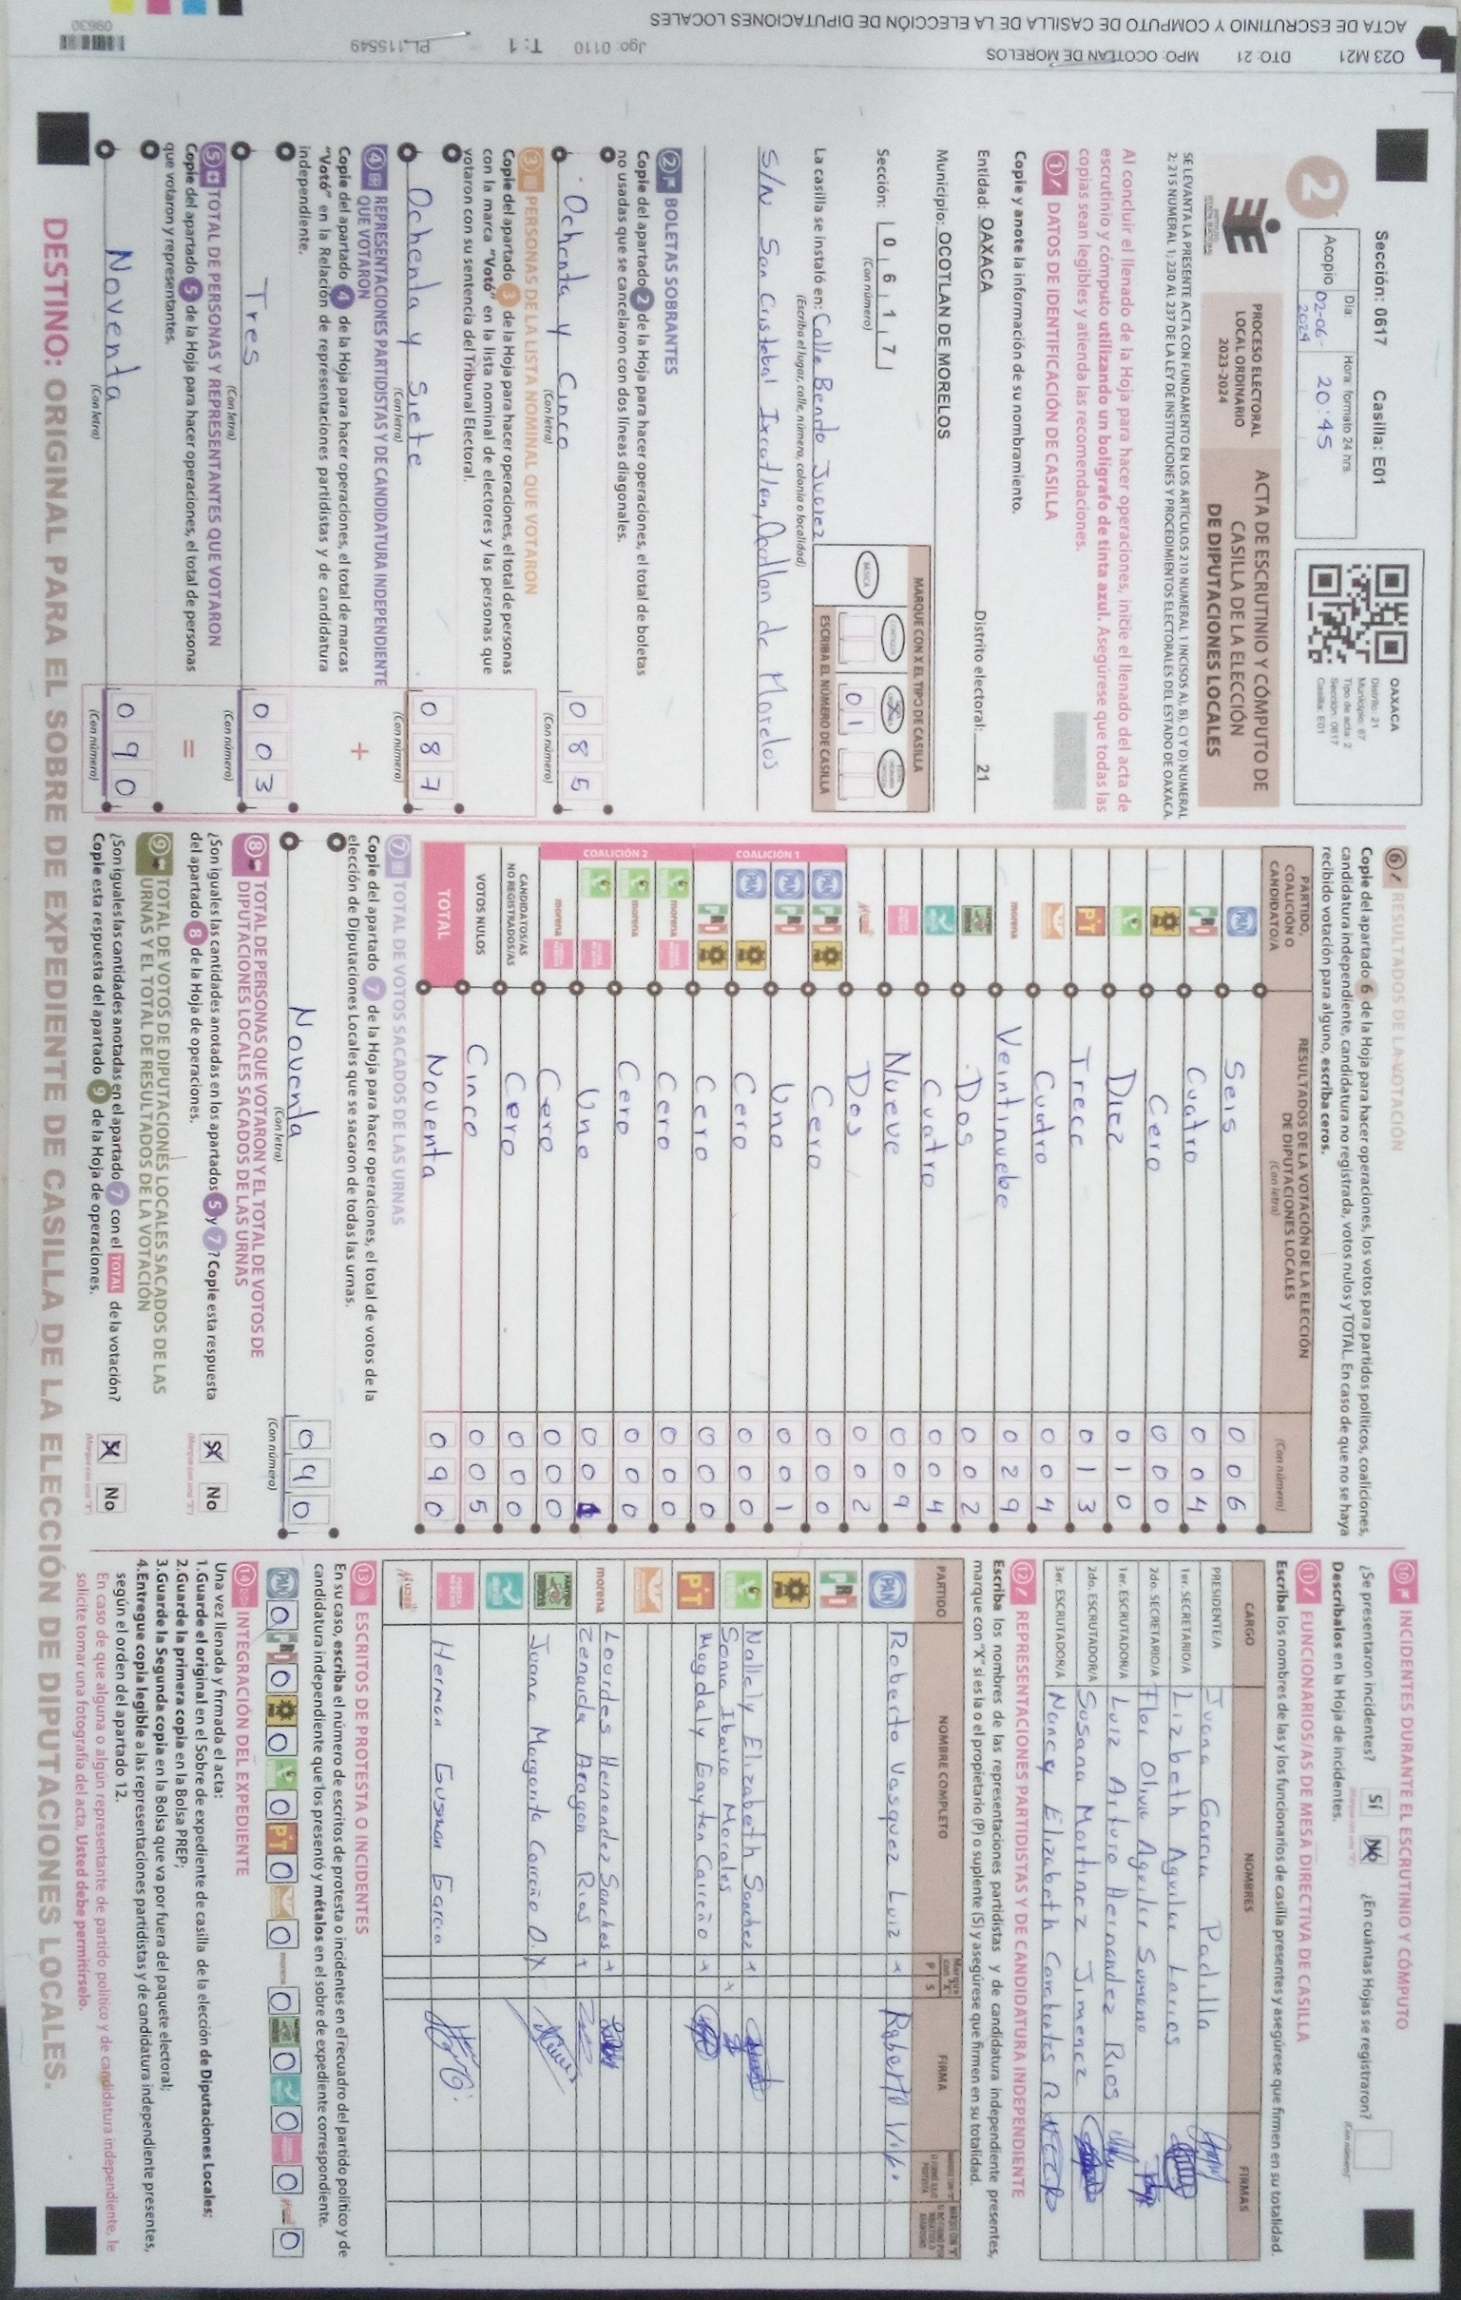 O23 M21 DTO: 21 MPO: OCOTLAN DE MORELOS Jgo: 0110 T: 1 PL-115549
ACTA DE ESCRUTINIO Y COMPUTO DE CASILLA DE LA ELECCIÓN DE DIPUTACIONES LOCALES
09630
Sección: 0617 Casilla: E01
2
Día: Hora: formato 24 hrs.
Acopio 02-06-2024 20:45
OAXACA
Distrito: 21
Municipio: 67
Tipo de acta: 2
Sección: 0617
Casilla: E01
PROCESO ELECTORAL
LOCAL ORDINARIO
2023-2024
ACTA DE ESCRUTINIO Y CÓMPUTO DE
CASILLA DE LA ELECCIÓN
DE DIPUTACIONES LOCALES
SE LEVANTA LA PRESENTE ACTA CON FUNDAMENTO EN LOS ARTÍCULOS 210 NUMERAL 1 INCISOS A), B), C) Y D) NUMERAL
2; 215 NUMERAL 1; 230 AL 237 DE LA LEY DE INSTITUCIONES Y PROCEDIMIENTOS ELECTORALES DEL ESTADO DE OAXACA.
Al concluir el llenado de la Hoja para hacer operaciones, inicie el llenado del acta de
escrutinio y cómputo utilizando un bolígrafo de tinta azul. Asegúrese que todas las
copias sean legibles y atienda las recomendaciones.
1 DATOS DE IDENTIFICACIÓN DE CASILLA
Copie y anote la información de su nombramiento.
Entidad: OAXACA Distrito electoral: 21
Municipio: OCOTLAN DE MORELOS
Sección: 0 6 1 7
(Con número)
MARQUE CON X EL TIPO DE CASILLA
BÁSICA
X
0 1
ESCRIBA EL NÚMERO DE CASILLA
La casilla se instaló en: Calle Benito Juarez
(Escriba el lugar, calle, número, colonia o localidad)
S/N San Cristobal Ixcatlan, Ocotlan de Morelos
2 BOLETAS SOBRANTES
Copie del apartado 2 de la Hoja para hacer operaciones, el total de boletas
no usadas que se cancelaron con dos líneas diagonales.
Ochenta y Cinco 0 8 5
(Con letra) (Con número)
3 PERSONAS DE LA LISTA NOMINAL QUE VOTARON
Copie del apartado 3 de la Hoja para hacer operaciones, el total de personas
con la marca "Votó" en la lista nominal de electores y las personas que
votaron con su sentencia del Tribunal Electoral.
Ochenta y Siete 0 8 7
(Con letra) (Con número)
4 REPRESENTACIONES PARTIDISTAS Y DE CANDIDATURA INDEPENDIENTE
QUE VOTARON
Copie del apartado 4 de la Hoja para hacer operaciones, el total de marcas
"Votó" en la Relación de representaciones partidistas y de candidatura
independiente.
+
Tres 0 0 3
(Con letra) (Con número)
5 TOTAL DE PERSONAS Y REPRESENTANTES QUE VOTARON
Copie del apartado 5 de la Hoja para hacer operaciones, el total de personas
que votaron y representantes.
=
Noventa 0 9 0
(Con letra) (Con número)
6 RESULTADOS DE LA VOTACIÓN
Copie del apartado 6 de la Hoja para hacer operaciones, los votos para partidos políticos, coaliciones,
candidatura independiente, candidatura no registrada, votos nulos y TOTAL. En caso de que no se haya
recibido votación para alguno, escriba ceros.
PARTIDO, COALICIÓN O CANDIDATO/A
RESULTADOS DE LA VOTACIÓN DE LA ELECCIÓN DE DIPUTACIONES LOCALES
(Con letra) (Con número)
PAN Seis 0 0 6
PRI Cuatro 0 0 4
Cero 0 0 0
Diez 0 1 0
PT Trece 0 1 3
Cuatro 0 0 4
morena Veintinuebe 0 2 9
Dos 0 0 2
Cuatro 0 0 4
Nueve 0 0 9
Mujer Dos 0 0 2
COALICIÓN 1
PAN PRI Cero 0 0 0
PAN PRI Uno 0 0 1
PAN Cero 0 0 0
PRI Cero 0 0 0
COALICIÓN 2
morena Cero 0 0 0
morena Cero 0 0 0
Uno 0 0 1
morena Cero 0 0 0
CANDIDATOS/AS NO REGISTRADOS/AS Cero 0 0 0
VOTOS NULOS Cinco 0 0 5
TOTAL Noventa 0 9 0
7 TOTAL DE VOTOS SACADOS DE LAS URNAS
Copie del apartado 7 de la Hoja para hacer operaciones, el total de votos de la
elección de Diputaciones Locales que se sacaron de todas las urnas.
Noventa 0 9 0
(Con letra) (Con número)
8 TOTAL DE PERSONAS QUE VOTARON Y EL TOTAL DE VOTOS DE
DIPUTACIONES LOCALES SACADOS DE LAS URNAS
¿Son iguales las cantidades anotadas en los apartados 5 y 7? Copie esta respuesta
del apartado 8 de la Hoja de operaciones.
Sí No
9 TOTAL DE VOTOS DE DIPUTACIONES LOCALES SACADOS DE LAS
URNAS Y EL TOTAL DE RESULTADOS DE LA VOTACIÓN
¿Son iguales las cantidades anotadas en el apartado 7 con el TOTAL de la votación?
Copie esta respuesta del apartado 9 de la Hoja de operaciones.
Sí No
10 INCIDENTES DURANTE EL ESCRUTINIO Y CÓMPUTO
¿Se presentaron incidentes? SÍ No ¿En cuántas Hojas se registraron?
(Con número)
Descríbalos en la Hoja de incidentes.
11 FUNCIONARIOS/AS DE MESA DIRECTIVA DE CASILLA
Escriba los nombres de las y los funcionarios de casilla presentes y asegúrese que firmen en su totalidad.
CARGO NOMBRES FIRMAS
PRESIDENTE/A Juana Garcia Padilla
1er. SECRETARIO/A Lizbeth Aguilar Larios
2do. SECRETARIO/A Flor Olivia Aguilar Sumano
1er. ESCRUTADOR/A Luiz Arturo Hernandez Rios
2do. ESCRUTADOR/A Susana Martinez Jimenez
3er. ESCRUTADOR/A Nancy Elizabeth Corrales R.
12 REPRESENTACIONES PARTIDISTAS Y DE CANDIDATURA INDEPENDIENTE
Escriba los nombres de las representaciones partidistas y de candidatura independiente presentes,
marque con "X" si es la o el propietario (P) o suplente (S) y asegúrese que firmen en su totalidad.
PARTIDO NOMBRE COMPLETO Marque con "X" P S FIRMA
PAN Roberto Vasquez Luiz x Roberto
PRI
Nallely Elizabeth Sanchez x
Sonia Ibarra Morales x
PT Magdaly Gaytan Carreño x
morena Lourdes Hernandez Sanches x
Zenaida Aragon Rios x
Juana Margarita Carreño O. X
Herman Guzman Garcia
Mujer
13 ESCRITOS DE PROTESTA O INCIDENTES
En su caso, escriba el número de escritos de protesta o incidentes en el recuadro del partido político y de
candidatura independiente que los presentó y métalos en el sobre de expediente correspondiente.
PAN 0 PRI 0 0 0 PT 0 0 morena 0 0 0 0 0
14 INTEGRACIÓN DEL EXPEDIENTE
Una vez llenada y firmada el acta:
1.Guarde el original en el Sobre de expediente de casilla de la elección de Diputaciones Locales;
2.Guarde la primera copia en la Bolsa PREP;
3.Guarde la Segunda copia en la Bolsa que va por fuera del paquete electoral;
4.Entregue copia legible a las representaciones partidistas y de candidatura independiente presentes,
según el orden del apartado 12.
En caso de que alguna o algún representante de partido político y de candidatura independiente, le
solicite tomar una fotografía del acta. Usted debe permitírselo.
DESTINO: ORIGINAL PARA EL SOBRE DE EXPEDIENTE DE CASILLA DE LA ELECCIÓN DE DIPUTACIONES LOCALES.